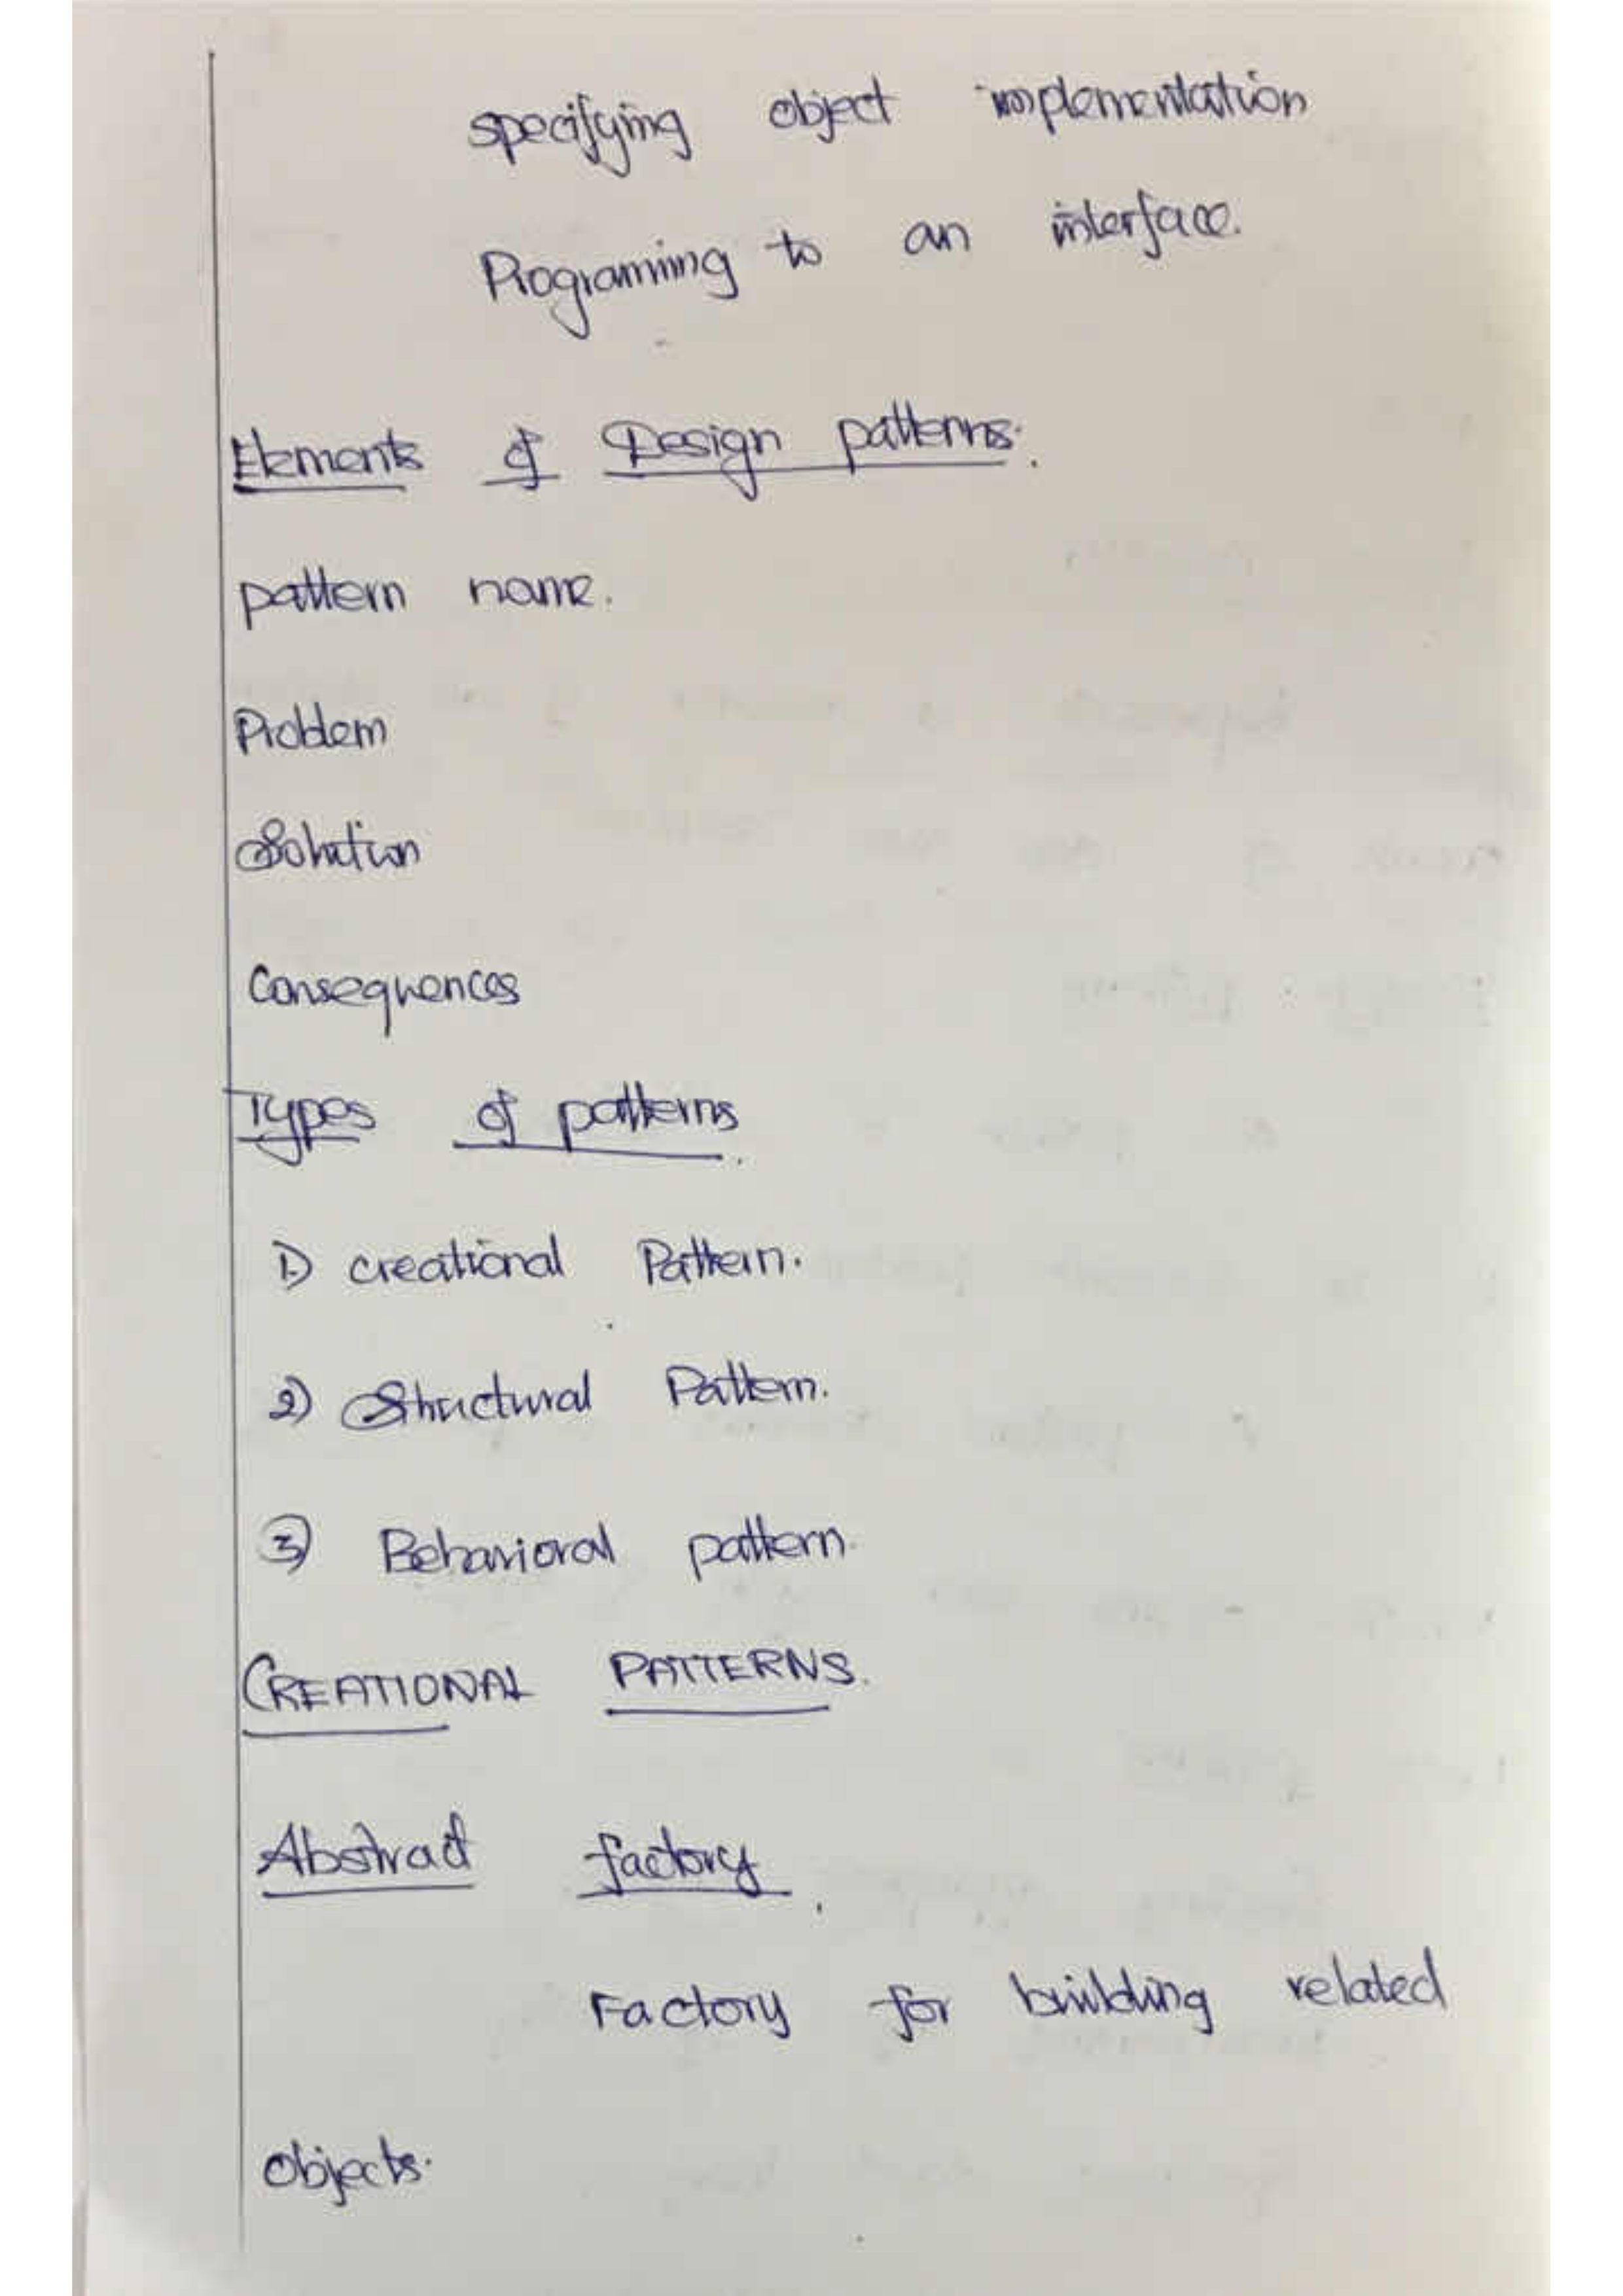 specifying object implementation
Programing to an interface.
Elements of Design patterns.
pattern name.
Problem
Solution
Consequences
Types of patterns.
1) creational Pattern.
2) Structural Pattern.
3) Behavioral pattern.
CREATIONAL PATTERNS.
Abstract factory.
Factory for building related
objects.